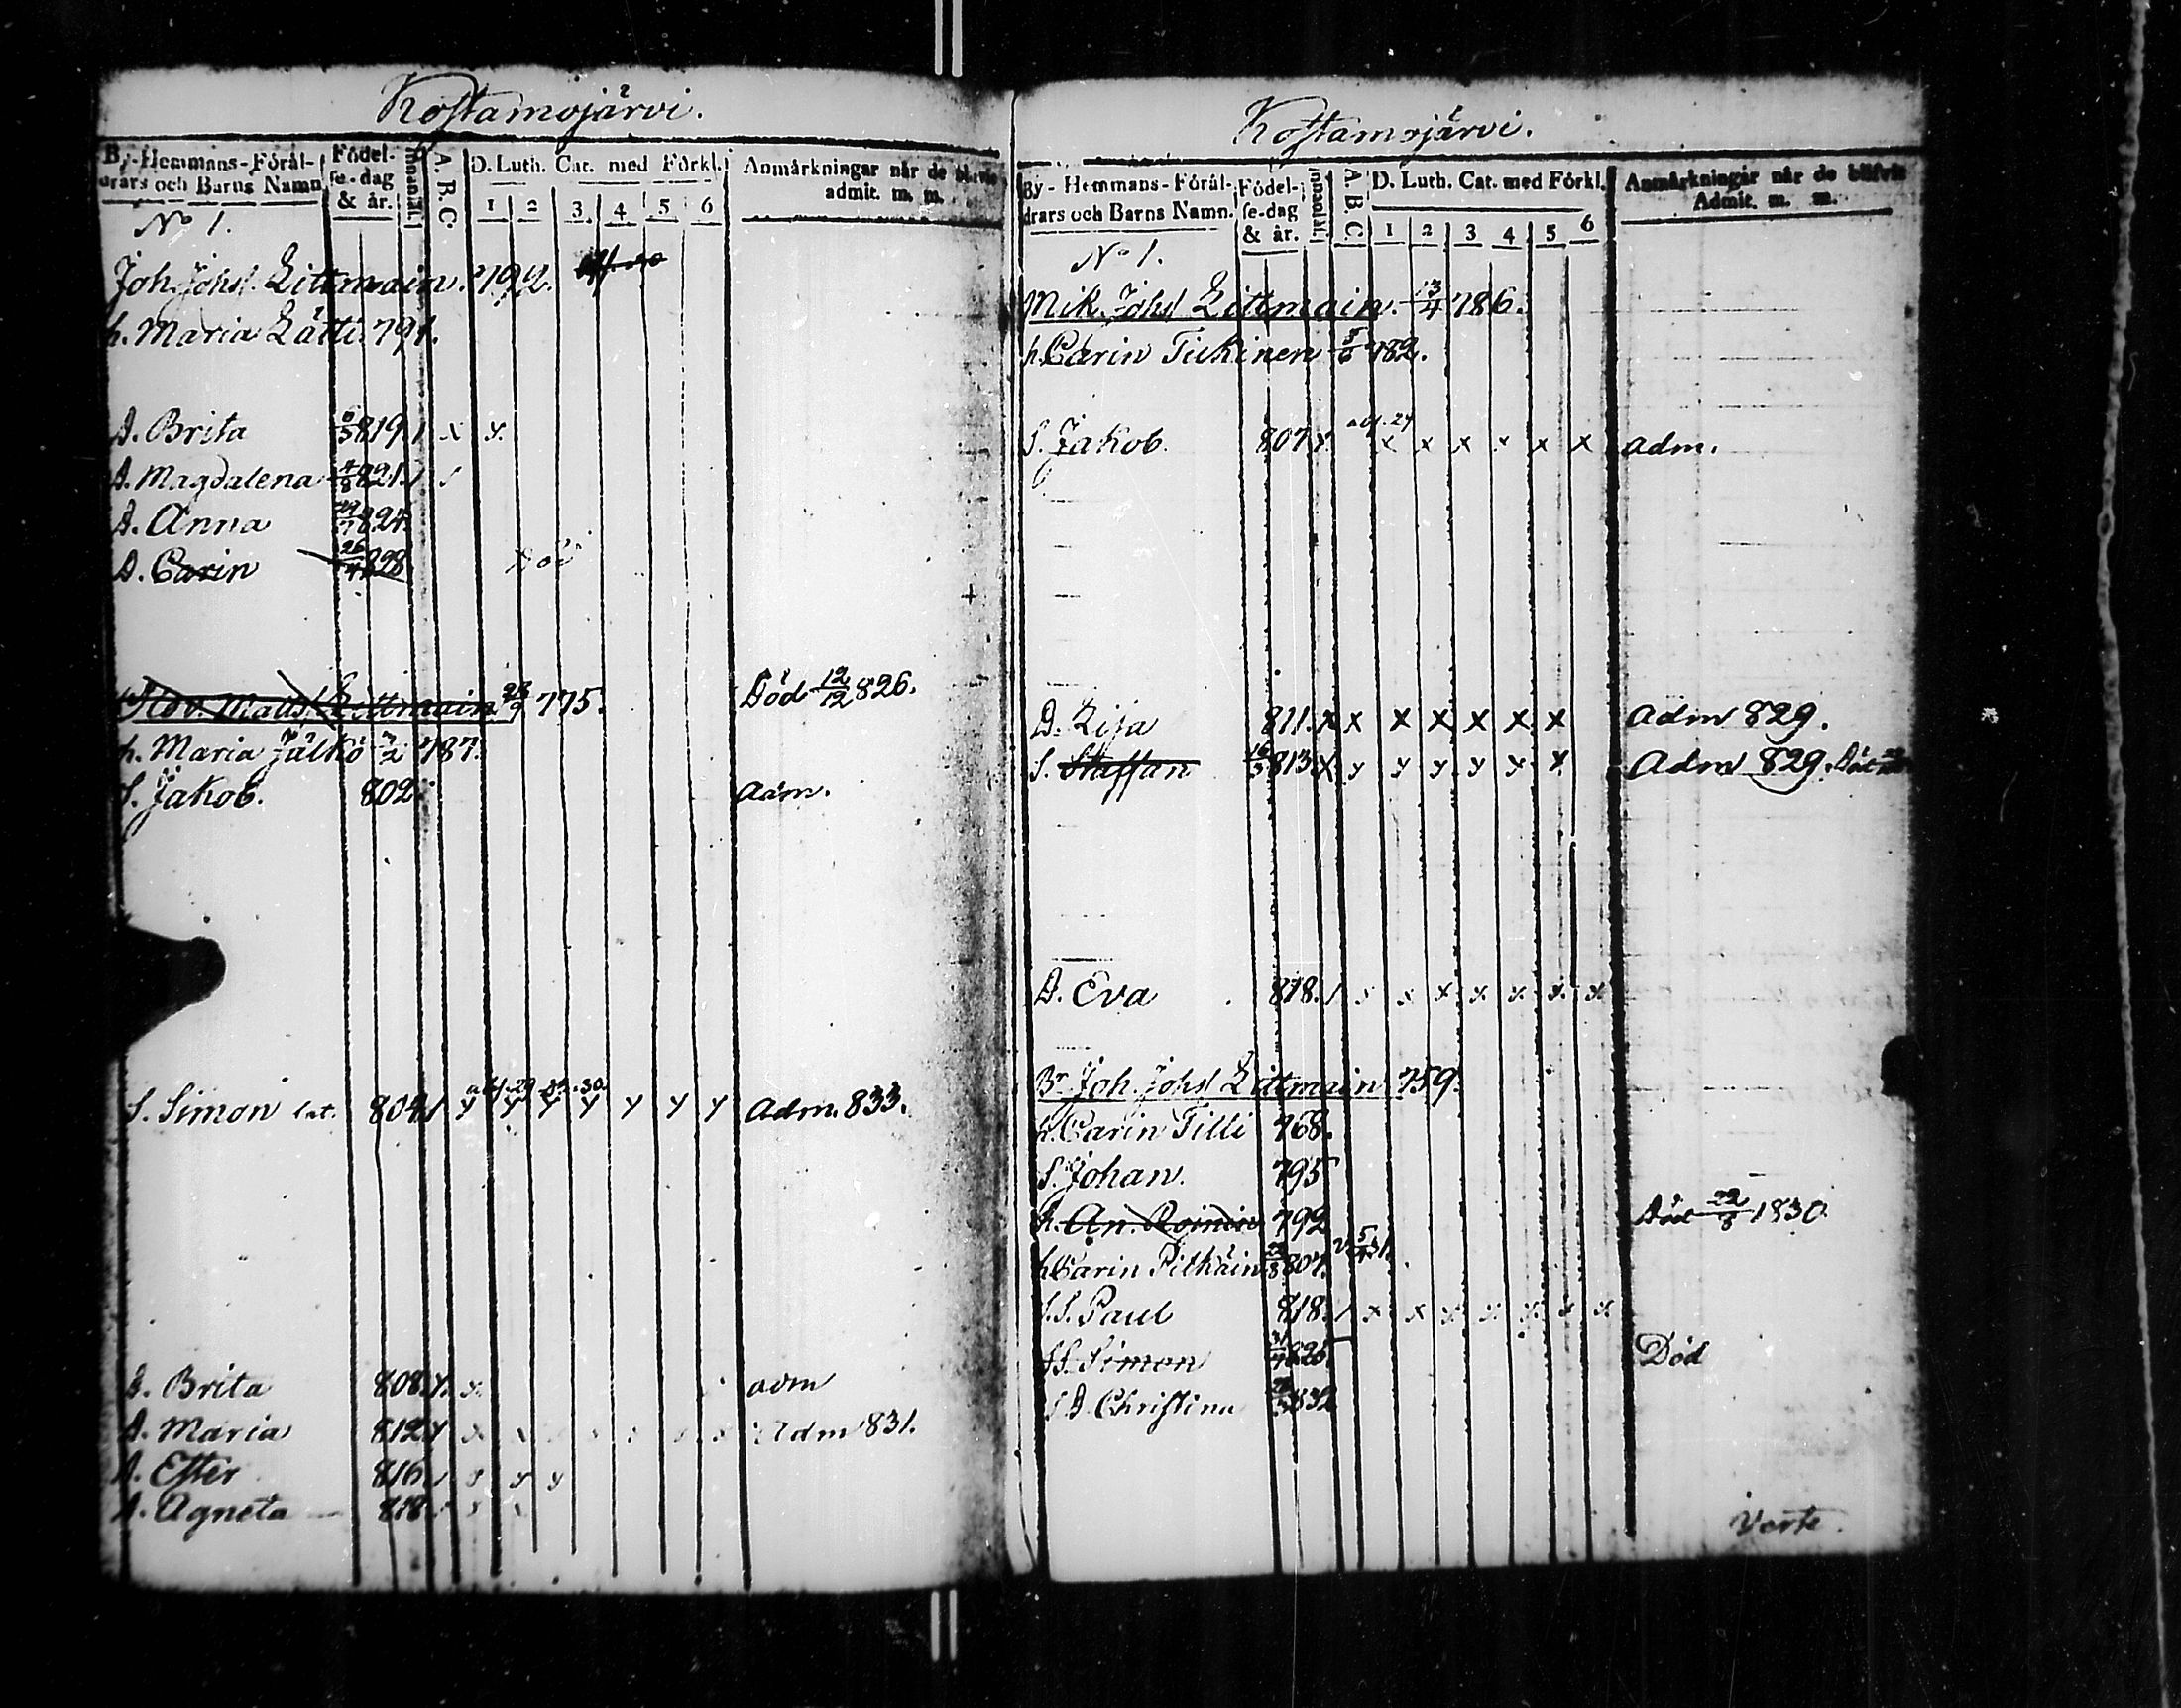 Kostamojärvi.
By-Hemmans-Föräl-
drars och Barns Namn
Födel-
se-dag
& år.
Innanläs.
A. B. C.
D. Luth. Cat. med Förkl.
1 2 3. 4 5 6
Anmärkningar når de blifvit
admit. m. m.
No 1.
Joh. Johs. Littmain. 792.
h. Maria Lätti. 791.
D. Brita 6/5 819. / x x.
D. Magdalena 4/8 821. / /
D. Anna 824.
D. Carin 26/4 828 Död
Matts. Littmain 775. Död 12/12 826.
h. Maria Jälkö 7/2 787.
S. Jakob. 802. adm.
S. Simon 804. / y y y y y y y adm. 833.
D. Brita 808. x. x. adm
D. Maria 812. x x x x x x x x Adm 831.
D. Ester 816. / x y y
D. Agneta 818.
Kostamojärvi.
By-Hemmans-Föräl-
drars och Barns Namn.
Födel-
se-dag
& år.
Innanläs.
A. B. C.
D. Luth. Cat. med Förkl.
1 2 3 4 5 6
Anmärkningar når de blifvit
Admit. m. m.
No 1.
Mik. Johs Littmain. 13/4 786.
h. Carin Tickinen 782.
S. Jakob. 807. x x x x x x adm.
D. Lisa 811. x x x x x x x adm 829.
S. Staffan 16/5 813. x y y y y y y Adm 829. Död
D. Eva 818. / x x x x x x x
Br. Joh. Johs Littmain 759.
h. Carin Tilli 768.
S. Johan. 795
h. An. Roinin 792 Död 22/8 1830.
h. Carin Pitkäin 807.
S.S. Paul 818. / x x x x x x x
S.S. Simon 826. Död
S.D. Christina 832
Verte.